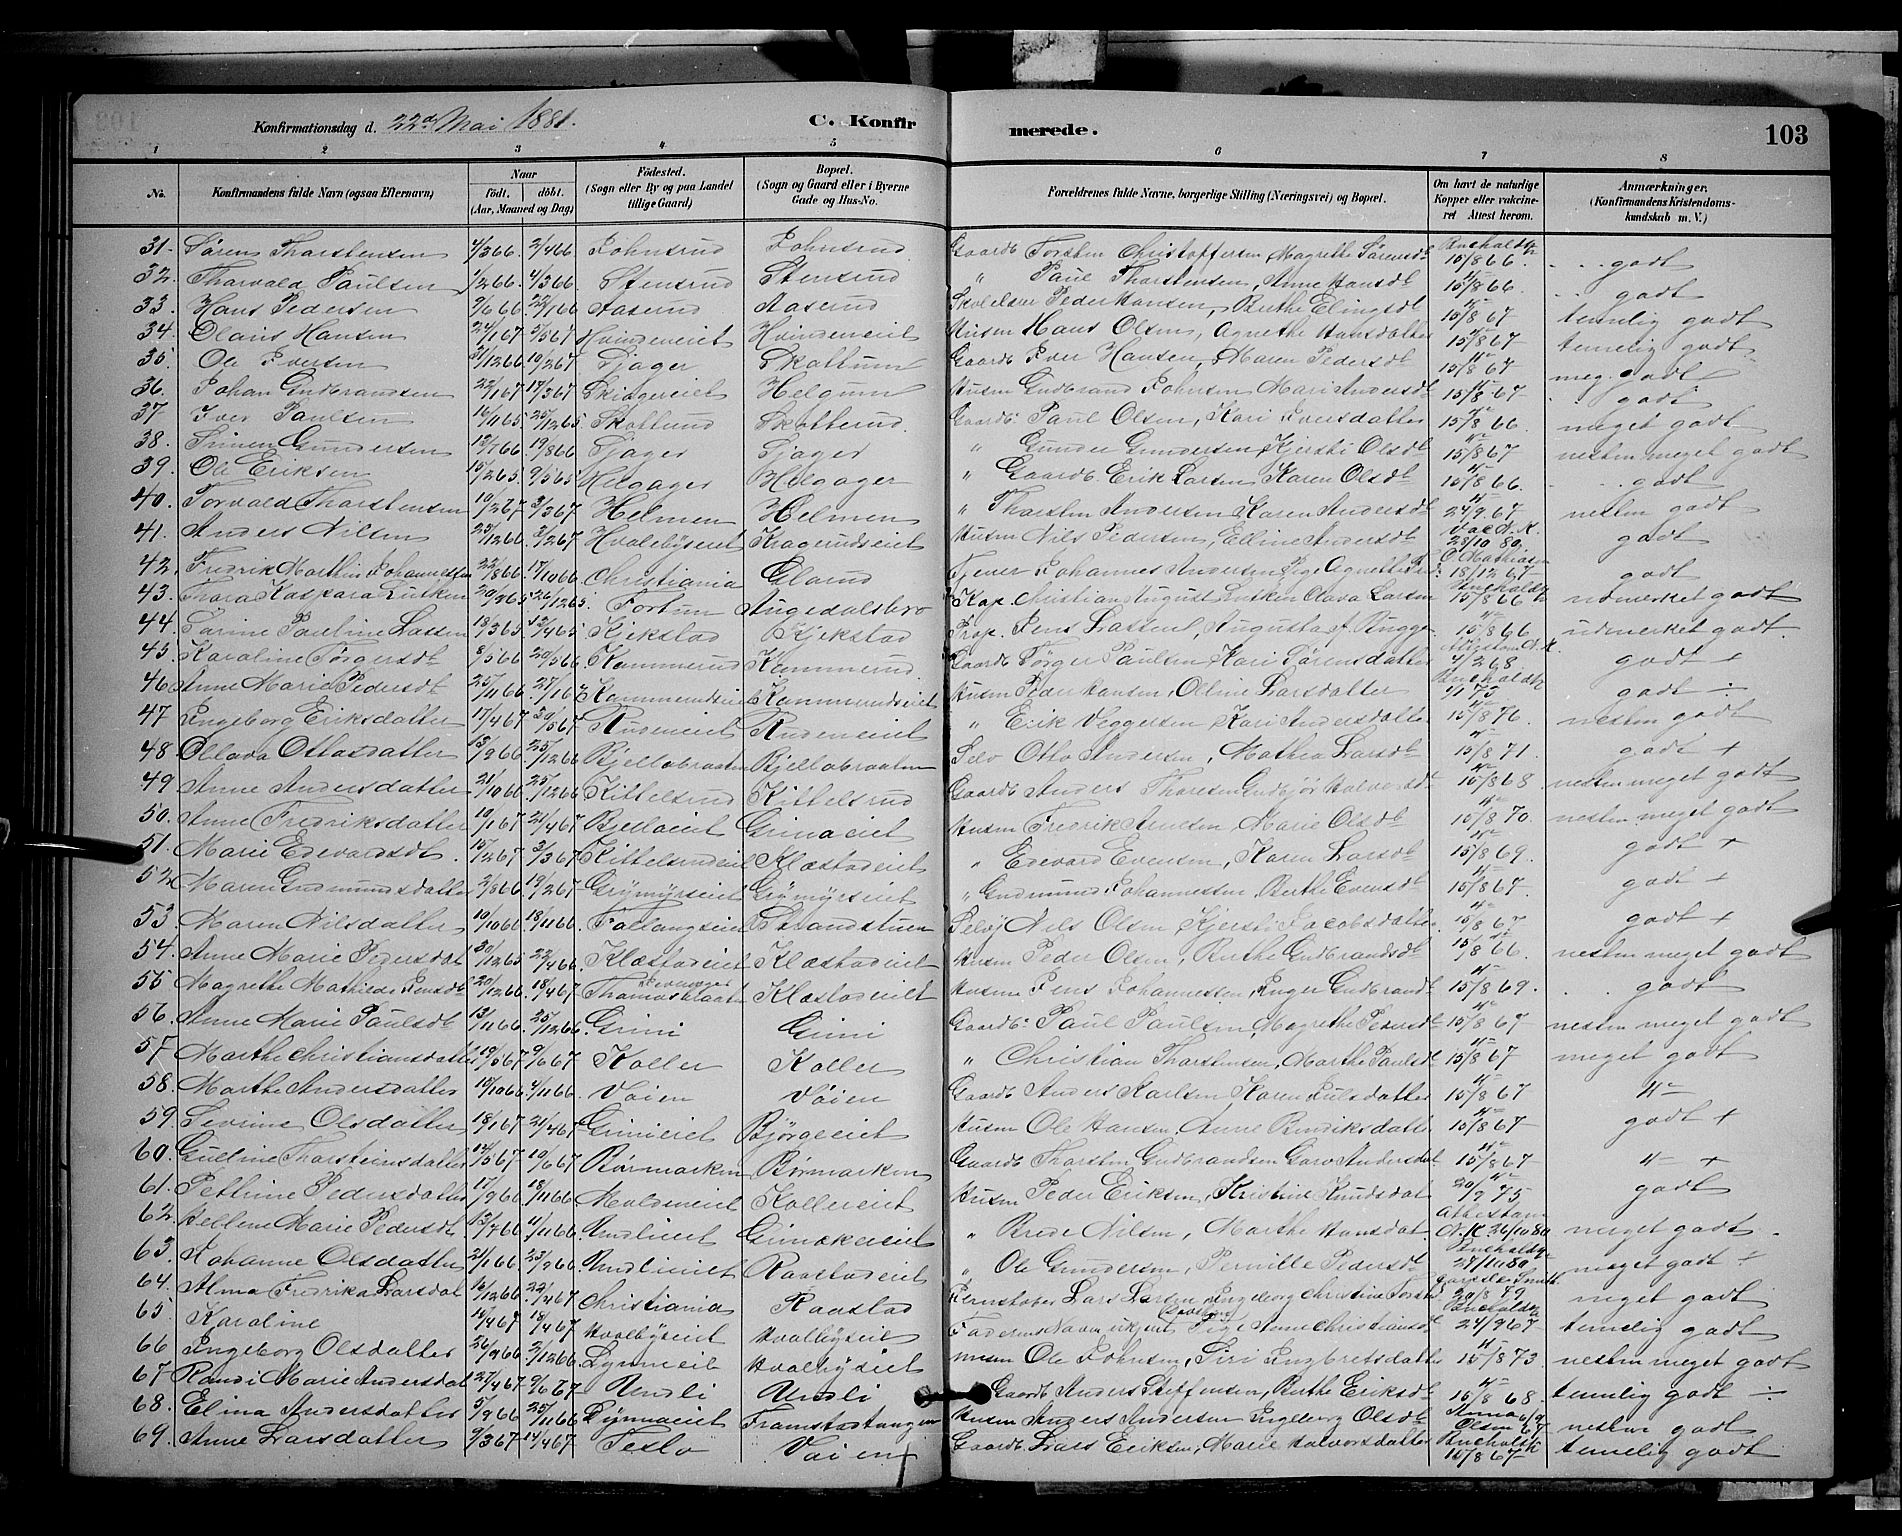 Konfirmationsdag d. 22d Mai 1881. C. Konfir merede. 103
1 2 3 4 5 6 7 8
No. Konfirmandens fulde Navn (ogsaa Efternavn) Naar födt. döbt. (Aar, Maaned og Dag) Födested. (Sogn eller By og paa Landet tillige Gaard) Bopæl. (Sogn og Gaard eller i Byerne Gade og Hus-No. Forældrenes fulde Navne, borgerlige Stilling (Næringsvei) og Bopæl. Om havt de naturlige Kopper eller vakcineret Attest herom. Anmærkninger. (Konfirmandens Kristendomskundskab m. V.)
31. Sören Thorstensen 4/3 66. 2/4 66 Johnsrud Johnsrud Gaardb Torsten Christoffersen Magrethe Sörensdt 15/8 66. godt
32. Thorvald Paulsen 1/2 66. 4/3 66 Stensrud Stensrud " Paul Thorstensen, Anne Hansdt 15/8 66. godt
33. Hans Pedersen Aaserud Aaserud Peder Hansen, Berthe Elingsdt 15/8 67 temelig godt
34. Olaus Hansen 24/1 67 3/5 67 Hvindeneiet Hvindeneiet Husm Hans Olsen, Agnethe Hansdatter 15/8 67 temelig godt
35. Ole Iversen 31/12 66 10/2 67 Gjager Skottum Gaardb Iver Hansen, Maren Pedersdt 15/8 67 meg. godt
36. Johan Gudbrandsen 22/1 67 17/3 67 Skiagereiet Helgum Husm Gudbrand Johnsen Mari Andersdt 15/8 67 godt
37. Iver Paulsen 16/11 65 25/12 65 Skotterud Skotterud. Gaardb. Paul Olsen, Kari Iversdatter 15/8 66. meget godt
38. Simen Gundersen 12/7 66 19/8 66 Gjager Gjager " Gunder Gundersen Kjersti Olsdt 15/8 67 nesten meget godt
39. Ole Eriksen 15/2 65 9/5 65 Helgager Helgager " Gaardb. Erik Larsen Karen Olsdt 15/8 66. godt
40. Torvald Thorstensen 10/2 67 3/3 67 Helmen Helmen " Thorsten Andersen Karen Andersdt 24/9 67 nesten godt
41. Anders Nilsen 25/12 66 3/2 67 Hvalebyseiet Kragerudseiet Husm Nils Pedersen, Elline Andersdt 28/10 80. godt
42. Fredrik Marthin Johannessen 22/8 66. 17/10 66 Christiania Glorud Tjener Johannes Andersen Pige Agnethe 18/12 67 godt
43. Thora Kaspara Lutken Fortun Augedalsbro Kap. Christian August Lutken Olava Larsen 15/8 66 udmerket godt
44. Sarine Pauline Lassen 18/3 65 Kjekstad Kjekstad Prop. Jens Lassen, Augusta A. Bugge. 15/8 66 udmerket godt.
45. Karoline Törgersdt 8/5 66 20/5 66 Kammerud Kammerud Gaardb Törger Paulsen Kari Sörensdatter 4/2 68 godt +
46. Anne Marie Pedersdt 25/11 66 27/1 67 Kammerudseiet Kammerudseiet Husm Peder Hansen, Olline Larsdatter 1/1 73 godt ÷
47. Engeborg Eriksdatter 17/4 67 30/5 67 Rudeneiet Rudeneiet " Erik Veggersen Kari Andersdatter 15/8 76. nesten godt
48. Ollava Ottosdatter 25/12 66 Bjellabraaten Bjellabraaten Selv Otto Andersen, Mathea Larsdt 15/8 71. godt +
49. Anne Andersdatter 21/10 66 25/12 66 Kittelsrud Kittelsrud Gaardb Anders Thoresen Gudbjör Halvorsdt 15/8 68 nesten meget godt
50. Anne Fredriksdatter 10/1 67 21/4 67 Bjellaeiet Grinaeiet Husm Fredrik Arnesen, Marie Olsdt 15/8 70. nesten meget godt
51. Marie Edevardsdt. 15/2 67 3/3 67 Kittelsrudeiet Klæstadeiet " Edevard Evensen, Karen Larsdt 15/8 69. godt +
52. Maren Gudmundsdatter 2/8 66 19/2 67 Grymyrseiet Grymyrseiet " Gudmund Johannessen Berthe Evensdt 15/8 67. godt +
53. Maren Nilsdatter 10/10 66 18/11 66 Fallangseiet Strandstuen Nils Olsen Kjersti Jacobsdatter. 15/8 67 godt +
54. Anne Marie Pedersdat 30/12 65 22/4 66 Klæstadeiet Klæstadeiet Husm Peder Olsen, Berthe Gudbrandsdt 15/8 66. nesten meget godt
55 Magrethe Mathilde Jensdt 20/12 66. 18/4 67 Klæstadeiet Husm Jens Johannessen, Enger Gudbrandt 15/8 69. godt
56. Anne Marie Paulsdt 13/11 66 25/12 66 Grini Grini Gaardb. Paul Paulsen, Magrethe Pedersdt 15/8 67 nesten meget godt
57. Marthe Christiansdatter 19/5 67 9/6 67 Koller Koller " Christian Thorstensen, Marthe Paulsdt 15/8 67 meget godt
58. Marthe Andersdatter 10/10 66 4/11 66 Vöien Vöien Gaardb Anders Karlsen Karen Lulsdatter 15/8 67 "-
59. Severine Olsdatter 18/1 67 21/4 67 Grinieiet Björgeeiet Husm Ole Hansen, Anne Bendiksdatter 15/8 67 godt +
60. Gueline Thorsteinsdatter 14/5 67 10/6 67 Börmarken Börmarken Gaardb Thorsten Gudbrandsen Goro Andersdat 15/8 67 "- +
61. Pethrine Pedersdatter 17/9 66 18/11 66 Moldeneiet Kollereiet Husm Peder Eriksen, Kristine Knudsdat 20/9 75 godt
62. Hellene Marie Pedersdt 13/7 66 4/11 66 Undlieiet Grinakereiet " Brede Nilsen, Marthe Hansdat. N.K 26/10 80 meget godt.
63. Johanne Olsdatter 21/1 66 25/2 66 Undlieiet Raastadeiet " Ole Gundersen, Pernille Pedersdt 27/10 80 meget godt ÷
64. Alma Fredrika Larsdat 16/12 66 22/4 67 Christiania Raastad Lars Larsen Engeborg Christine 20/8 79 meget godt
65. Karoline 14/4 67 18/4 67 Hvalbyseiet Hvalbyseiet Faderens Navn ukjent Pige Anne Christiansdt 24/9 67 temelig godt
66 Engeborg Olsdatter 26/9 66 2/12 66 Lynneeiet Hvalbyseiet Husm Ole Johnsen, Siri Engbretsdatter 15/8 73. nesten meget godt
67. Randi Marie Andersdat 27/4 67 9/6 67 Undli Undli Gaardb Anders Steffensen, Berthe Eriksdt 15/8 68. temelig godt ÷
68. Elina Andersdatter 5/9 66 25/11 66 Dynnaeiet Framstadtangen Husm Anders Andersen Engeborg Olsdt nesten godt
69. Anne Larsdatter 9/3 67 14/4 67 Teslo Vöien Gaardb Lars Eriksen, Marie Halvorsdatter 15/8 67 temelig godt